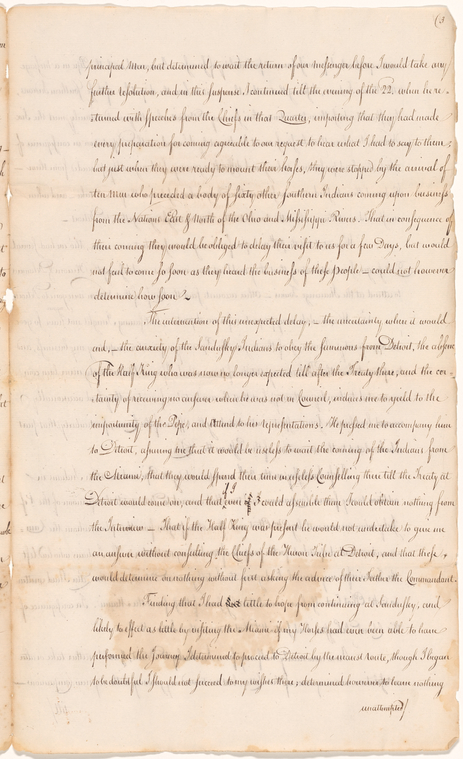 (3
principal Men, but determined to wait the return of our messenger before I would take any
further resolution, and in this suspense I continued till the evening of the 22. when he re-
-turned with speeches from the Chiefs in that Quarter, importing that they had made
every preparation for coming agreeable to our request to hear what I had to say to them;
but just when they were ready to mount their horses, they were stopped by the arrival of
ten Men who preceded a body of sixty other Southern Indians coming upon business
from the Nations East & North of the Ohio and Missisippi Rivers. That in consequence of
their coming they would be obliged to delay their visit to us for a few Days, but would
not fail to come so soon as they heard the business of these people — could not however
determine how soon
The intimation of this unexpected delay, — the uncertainty when it would
end, — the anxiety of the Sandusky Indians to obey the summons from Detroit, the absence
of the Half King who was now no longer expected till after the Treaty there, and the cer-
-tainty of receiving no answer while he was not in Council, induces me to yield to the
importunity of the Pipe, and attend to his representations. He pressed me to accompany him
to Detroit, assuring me that it would be useless to wait the coming of the Indians from
the Miame; that they would spend their time in useless Counselling there till the Treaty at
Detroit would come on, and that if I could assemble them I could obtain nothing from
the Interview — That if the Half King was present he would not undertake to give me
an answer without consulting the Chiefs of the Huron Tribe at Detroit, and that these
would determine on nothing without first asking the advice of their Father the Commandant.
Finding that I had little to hope from continuing at Sandusky, and
likely to effect as little by visiting the Miame if my Horses had even been able to have
performed the journey, I determined to proceed to Detroit by the nearest route, though I began
to be doubtful I should not succeed to my wishes there; determined however to leave nothing
unattempted